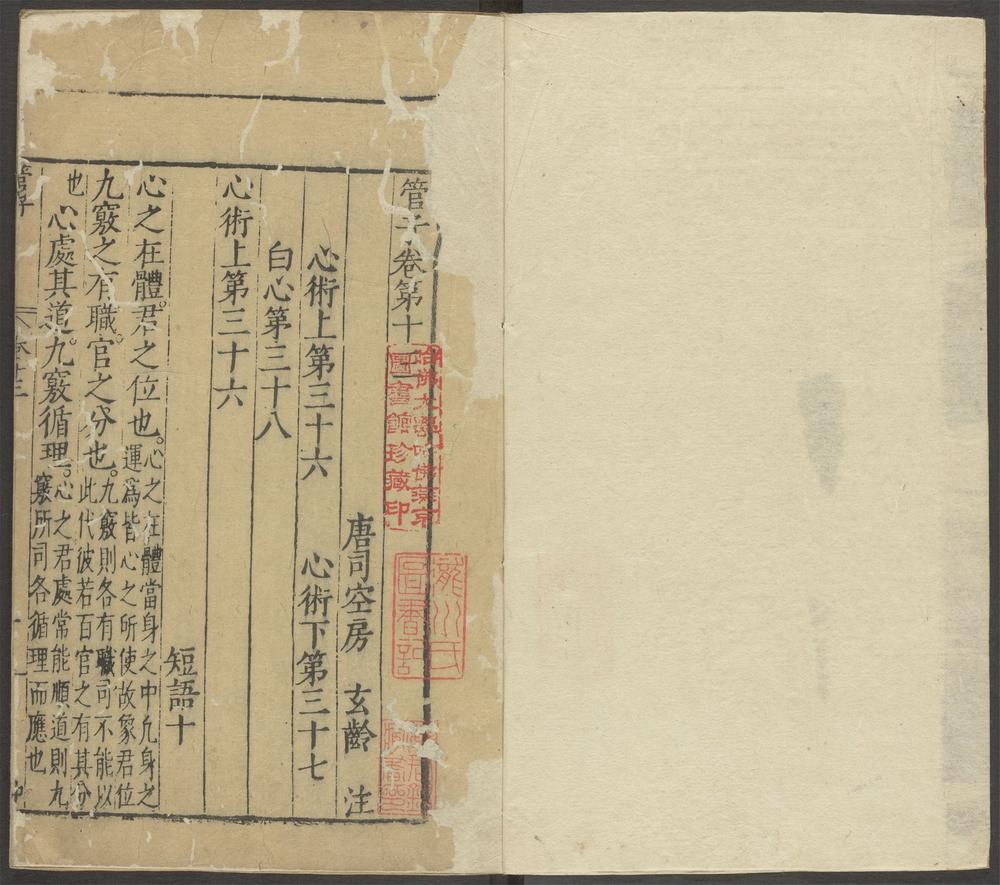 管子卷第十
唐司空房 玄齡 注
心術上第三十六 心術下第三十七
白心第三十八
心術上第三十六
短語十
心之在體。君之位也。心之在體當身之中凢身之
運爲皆心之所使故象君位
九竅之有職。官之分也。九竅則各有職司不能以
此代彼若百官之有其分
也
心處其道。九竅循理。心之君處常能順道則九
竅所司各循理而應也
哈佛大學哈佛燕京
圖書館珍藏印
瀧川氏
圖書記